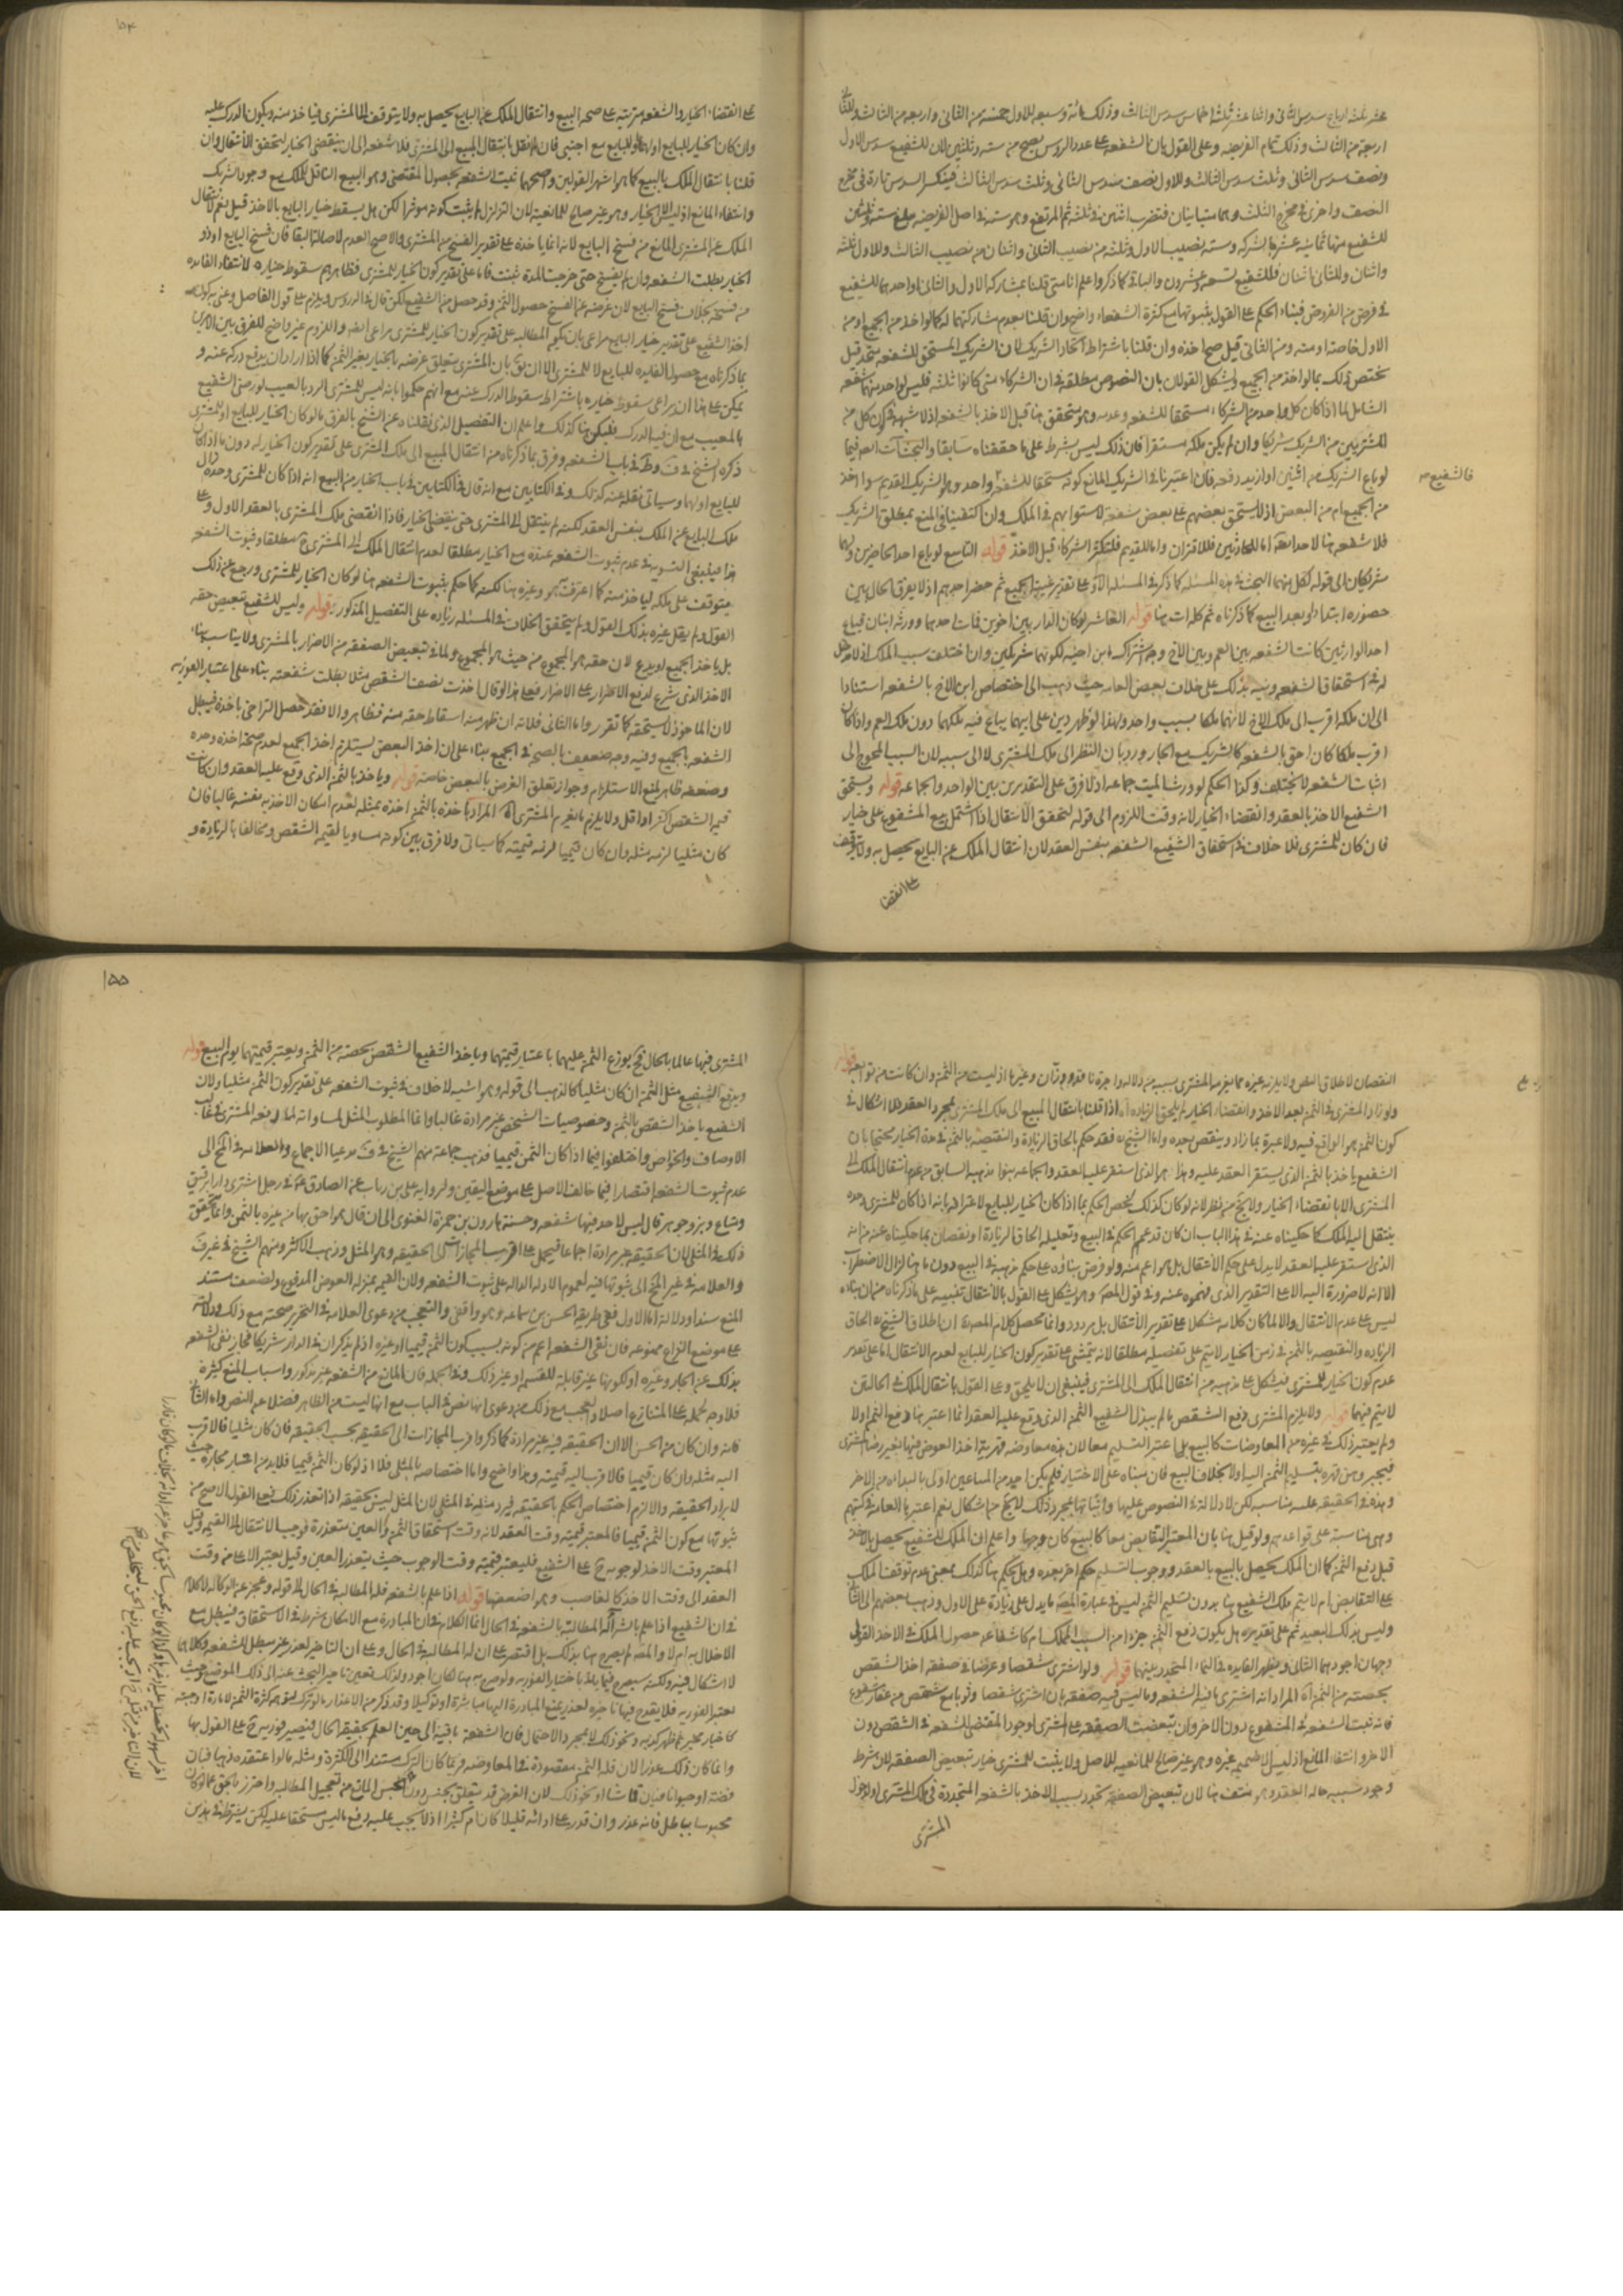 عشر ثلثة ارباع سدس الثاني واثنا عشر ثلثا خماس سدس الثالث وذلك مائة وسبعة للاول خمسة من الثاني واربعة من الثالث وللثاني
اربعة من الثالث وذلك تمام الفريضة وعلى القول بان الشفعة على عدد الرؤس يصح من ستة وثلثين لان للشفيع سدس الاول
ونصف سدس الثاني وثلث سدس الثالث وللاول نصف سدس الثاني وثلث سدس الثالث فينكسر السدس تارة في مخرج
النصف واخرى في مخرج الثلث وهما متباينان فتضرب اثنين في ثلثة ثم المرتفع وهو ستة في اصل الفريضة يبلغ ستة وثلثين
للشفيع منها ثمانية عشر بالشركة وستة بنصيب الاول وثلثة من نصيب الثاني واثنان من نصيب الثالث وللاول ثلثة
واثنان وللثاني اثنان فللشفيع تسعة وعشرون والباقي كما ذكر واعلم انا متى قلنا بمشاركة الاول والثاني او احدهما للشفيع
في فرض من الفروض فبناء الحكم على القول بثبوتها مع كثرة الشفعاء واضح وان قلنا بعدم مشاركتهما له كما لو اخذ من الجميع او من
الاول خاصة او منه ومن الثاني قيل صح اخذه وان قلنا باشتراط اتحاد الشريك لان الشريك المستحق للشفعة متحد قيل
يختص ذلك بما لو اخذ من الجميع ويشكل القولان بان النصوص مطلقة في ان الشركاء متى كانوا ثلثة فليس لواحد منهم شفعة
الشامل لما اذا كان كل واحد من الشركاء مستحقا للشفعة وعدمه وهو متحقق هنا قبل الاخذ بالشفعة اذ لا شبهة في كون كل من
المشتريين من الشريك شريكا وان لم يكن ملكه مستقرا فان ذلك ليس بشرط على ما حققناه سابقا والبحث آت ايضا فيما
لو باع الشريك من اثنين او ازيد دفعة فان اعتبرنا في الشريك المانع كونه مستحقا للشفعة فالشفيع واحد وهو الشريك القديم سواء اخذ
من الجميع ام من البعض اذ لا يستحق بعضهم على بعض شفعة لاستوائهم في الملك وان اكتفينا في المنع بمطلق الشريك
فلا شفعة هنا لاحد اتفاقا اما للحادثين فللاقتران واما للقديم فلتكثر الشركاء قبل الاخذ قوله التاسع لو باع احد الحاضرين ولهما
شريكان الى قوله لكل منهما البحث في هذه المسئلة كما ذكر في المسئلة الاولى على تقدير غيبة الجميع ثم حضر احدهم اذ لا يفرق الحال بين
حضوره ابتداء او بعد البيع كما ذكرناه ثم كلمات هنا قوله العاشر لو كان الدار بين اخوين فمات احدهما وورثه ابنان فباع
احد الوارثين كانت الشفعة بين العم وبين الاخ وجه اشتراك ابن اخيه لكونهما شريكين وان اختلف سبب الملك اذ لا مدخل
له في استحقاق الشفعة ونبه بذلك على خلاف بعض العامة حيث ذهب الى اختصاص ابن الاخ بالشفعة استنادا
الى ان ملكه اقرب الى ملك الاخ لانهما ملكا بسبب واحد ولهذا لو ظهر دين على ابيهما يباع فيه ملكهما دون ملك العم واذا كان
اقرب ملكا كان احق بالشفعة كالشريك مع الجار ورد بان النظر الى ملك المشتري لا الى سببه لان السبب المحوج الى
اثبات الشفعة لا يختلف وكذا الحكم لو ورث الميت جماعة اذ لا فرق على التقديرين بين الواحد والجماعة قوله ويستحق
الشفيع الاخذ بالعقد وانقضاء الخيار لانه وقت اللزوم الى قوله لتحقق الانتقال اذا اشتمل بيع المشفوع على خيار
فان كان للمشتري فلا خلاف في استحقاق الشفيع الشفعة بنفس العقد لان انتقال الملك عن البايع يحصل به ولا يتوقف
على انقضا
على انقضاء الخيار والشفعة مترتبة على صحة البيع وانتقال الملك عن البايع يحصل به ولا يتوقف الى المشتري فياخذ منه ويكون الدرك عليه
وان كان الخيار للبايع او لهما او للبايع مع اجنبي فان لم نقل بانتقال المبيع الى المشتري فلا شفعة الى ان ينقضي الخيار لتحقق الانتقال وان
قلنا بانتقال الملك بالبيع كما هو اشهر القولين واصحهما ثبت الشفعة لحصول المقتضي وهو البيع الناقل للملك مع وجود الشريك
وانتفاء المانع اذ ليس الا الخيار وهو غير صالح للمانعية لان التزلزل لم يثبت كونه مؤثرا لكن هل يسقط خيار البايع بالاخذ قيل نعم لانتقال
الملك عن المشتري المانع من فسخ البايع لانه انما ياخذه على تقدير الفسخ من المشتري والاصح العدم لاصالة البقاء فان فسخ البايع او ذو
الخيار بطلت الشفعة وان لم يفسخ حتى خرجت المدة ثبتت واما على تقدير كون الخيار للمشتري فظاهرهم سقوط خياره لانتفاء الفائدة
من فسخه بخلاف فسخ البايع لان غرضه من الفسخ حصول الثمن وقد حصل من الشفيع لكن قال في الدروس ويلزم على قول الفاضل وغيره كون
اخذ الشفيع على تقدير خيار البايع مراعى بان يكون المطالبة على تقدير كون الخيار للمشتري مراعى ايضا واللزوم غير واضح للفرق بين الامرين
بما ذكرناه مع حصول الفايدة للبايع لا للمشتري الا ان يق بان المشتري يتعلق غرضه بالخيار بغير الثمن كما اذا اراد ان يدفع دركه عنه و
يمكن على هذا ان يراعى سقوط خياره باشتراط سقوط الدرك عنه مع انهم حكموا بانه ليس للمشتري الرد بالعيب لو رضي الشفيع
بالمعيب مع ان فيه الدرك فليكن هنا كذلك واعلم ان التفصيل الذي نقلناه عن الشيخ بالفرق ما لو كان الخيار للبايع او للمشتري
ذكره الشيخ في ف وط في باب الشفعة وفرق بما ذكرناه من انتقال المبيع الى ملك المشتري على تقدير كون الخيار له دون ما اذا كان
للبايع او لهما وسياتي نقله عنه كذلك وفي الكتابين مع انه قال في الكتابين في باب الخيار من البيع انه اذا كان للمشتري وحده زال
ملك البايع عن الملك بنفس العقد لكنه لم ينتقل الى المشتري حتى ينقضي الخيار فاذا انقضى ملك المشتري بالعقد الاول وعلى
هذا فينبغي التسوية في عدم ثبوت الشفعة عنده مع الخيار مطلقا لعدم انتقال الملك الى المشتري مطلقا وثبوت الشفعة
متوقف على ملكه لياخذ منه كما اعترف به هو وغيره هنا لكنه كما حكم بثبوت الشفعة هنا لو كان الخيار للمشتري ورجع عن ذلك
القول ولم يقل غيره بذلك القول ولم يتحقق الخلاف في المسئلة زيادة على التفصيل المذكور قوله وليس للشفيع تبعيض حقه
بل ياخذ الجميع او يدع لان حقه هو المجموع من حيث هو المجموع ولما في تبعيض الصفقة من الاضرار بالمشتري ولا يناسب بناء
الاخذ الذي شرع لدفع الاضرار على الاضرار فعلى هذا لو قال اخذت نصف الشقص مثلا بطلت شفعته بناء على اعتبار الفورية
لان الماخوذ لا يستحقه كما تقرر واما الثاني فلانه ان ظهر منه اسقاط حقه منه فظاهر والا فقد حصل التراخي باخذه فيبطل
الشفعة بالجميع وفيه وجه ضعيف بالصحة في الجميع بناء على ان اخذ البعض يستلزم اخذ الجميع لعدم صحة اخذه وحده
وضعفه ظاهر لمنع الاستلزام وجواز تعلق الغرض بالبعض خاصة قوله وياخذ بالثمن الذي وقع عليه العقد وان كانت
قيمة الشقص اكثر او اقل ولا يلزم ما يغرم المشتري آه المراد باخذه بالثمن اخذه بمثله لعدم امكان الاخذ به نفسه غالبا فان
كان مثليا لزمه مثله وان كان قيميا لزمه قيمته كما سياتي ولا فرق بين كونه مساويا لقيمة الشقص ومخالفا بالزيادة و
النقصان لاطلاق النص ولا يلزمه غيره مما يغرمه المشتري بسببه من دلالة واجرة ناقد ووزان وغيرها اذ ليست من الثمن وان كانت من توابعه قوله
ولو زاد المشتري في الثمن بعد الاخذ وانقضاء الخيار لم يلحق الزيادة آه اذا قلنا بانتقال المبيع الى ملك المشتري بمجرد العقد فلا اشكال في
كون الثمن هو الواقع فيه ولا عبرة بما زاد وينقص بعده واما الشيخ ره فقد حكم بالحاق الزيادة والنقيصة بالثمن في مدة الخيار محتجا بان
الشفيع ياخذ بالثمن الذي يستقر العقد عليه وهذا هو الذي استقر عليه العقد والجماعة بنوا مذهبه السابق من عدم انتقال الملك الى
المشتري الا بانقضاء الخيار ولا يخ من نظر لانه لو كان كذلك لخص الحكم بما اذا كان الخيار للبايع لاعترافه بانه اذا كان للمشتري وحده
ينتقل اليه الملك كما حكيناه عنه في هذا الباب ان كان قد عمم الحكم في البيع وتعليله الحاق الزيادة او نقصان بما حكيناه عنه من انه
الذي استقر عليه العقد لا يدل على حكم الانتقال بل هو اعم منه ولو فرض بناؤه على حكم مذهبه في البيع دون ما هنا لزال الاضطراب
الا انه لا ضرورة اليه الا على التقدير الذي فهموه عنه وفي قول المصنف وهو يشكل على القول بالانتقال تنبيه على ما ذكرناه من ان بناءه
ليس على عدم الانتقال والا لما كان كلامه مشكلا على تقدير الانتقال بل مردود وانما محصل كلام المصنف ان اطلاق الشيخ ره الحاق
الزيادة والنقيصة بالثمن في زمن الخيار لا يتم على تفصيله مطلقا لانه يتمشى على تقدير كون الخيار للبايع لعدم الانتقال اما على تقدير
عدم كون الخيار للمشتري فيشكل على مذهبه من انتقال الملك الى المشتري فينبغي ان لا يلحق وعلى القول بانتقال الملك في الحالين
لا يتم فيهما قوله ولا يلزم المشتري دفع الشقص ما لم يبذل الشفيع الثمن الذي وقع عليه العقد انما اعتبر هنا دفع الثمن اولا
ولم يعتبر ذلك في غيره من المعاوضات كالبيع بل اعتبر التسليم معا لان هذه معاوضة قهرية اخذ العوض فيها بغير رضا المشتري
فيجبر وهن قهره بتسليم الثمن اليه اولا بخلاف البيع فان مبناه على الاختيار فلم يكن احد من المتبايعين اولى بالبداءة من الاخر
وهذه في الحقيقة علة مناسبة لكن لا دلالة في النصوص عليها واثباتها بمجرد ذلك لا يخ من اشكال نعم اعتبرها العامة في كتبهم
وهي مناسبة على قواعدهم ولو قيل هنا بان المعتبر التقابض معا كالبيع كان وجها واعلم ان الملك للشفيع يحصل بالاخذ
قبل دفع الثمن كما ان الملك يحصل بالبيع بالعقد ووجوب التسليم حكم اخر بعده وهل يحكم هنا كذلك بمعنى عدم توقف الملك
على التقابض ام لا يتم ملك الشفيع هنا بدون تسليم الثمن ليس في عبارة المصنف ما يدل على زيادة على الاول وذهب بعضهم الى الثاني
وليس بذلك البعيد ثم على تقديره هل يكون دفع الثمن جزءا من السبب المملك ام كاشفا عن حصول الملك في الاخذ القولي
وجهان اجودهما الثاني ويظهر الفايدة في النماء المتجدد بينهما قوله ولو اشترى شقصا وعرضا في صفقة اخذ الشقص
بحصته من الثمن آه المراد انه اشترى ما فيه الشفعة وما ليس فيه صفقة بان اشترى شقصا وثوبا مع شقص من عقار مشفوع
فانه تثبت الشفعة في المشفوع دون الاخر وان تبعضت الصفقة على المشتري لوجود المقتضي للشفعة في الشقص دون
الاخر وانتفاء المانع اذ ليس الا ضميمة غيره وهو غير صالح للمانعية للاصل ولا يثبت للمشتري خيار تبعيض الصفقة لان شرط
وجود سببه حالة العقد وهو منتف هنا لان تبعيض الصفقة تجدد بسبب الاخذ بالشفعة المتجددة في ملك المشتري او لدخول
المشتري
١٥٥
المشتري فيها عالما بالحال فح يوزع الثمن عليهما باعتبار قيمتهما وياخذ الشفيع الشقص بحصته من الثمن ويعتبر قيمتهما يوم البيع قوله
ويدفع الشفيع مثل الثمن ان كان مثليا كالذهب الى قوله وهو اشبه لا خلاف في ثبوت الشفعة على تقدير كون الثمن مثليا ولان
الشفيع ياخذ الشقص بالثمن وخصوصيات الشخص غير مرادة غالبا وانما المطلوب المثل لمساواته لما دفعه المشتري في غالب
الاوصاف والخواص واختلفوا فيما اذا كان الثمن قيميا فذهب جماعة منهم الشيخ في ف مدعيا الاجماع والعلامة في المخ الى
عدم ثبوت الشفعة اقتصارا فيما خالف الاصل على موضع اليقين ولرواية علي بن رئاب عن الصادق ع في رجل اشترى دارا برقيق
ومتاع وبز وجوهر قال ليس لاحد فيها شفعة وحسنة هارون بن حمزة الغنوي الى ان قال هو احق بها من غيره بالثمن وانما يتحقق
ذلك في المثلي لان الحقيقة غير مرادة اجماعا فيحمل على اقرب المجازات الى الحقيقة وهو المثل وذهب الاكثر ومنهم الشيخ في غير ف
والعلامة في غير المخ الى ثبوتها فيه لعموم الادلة الدالة على ثبوت الشفعة ولان القيمة بمنزلة العوض المدفوع ولضعف مستند
المنع سندا ودلالة اما الاول ففي طريقه الحسن بن سماعة وهو واقفي والتعجب من دعوى العلامة في التحرير صحته مع ذلك ودلالته
على موضع النزاع ممنوعة فان نفي الشفعة اعم من كونه بسبب كون الثمن قيميا او غيره اذ لم يذكر ان في الدار شريكا فجاز نفي الشفعة
بذلك عن الجار وغيره او لكونها غير قابلة للقسمة او غير ذلك وفي الجملة فان المانع من الشفعة غير مذكور واسباب المنع كثيرة
فلا وجه لحمله على المتنازع اصلا والعجب مع ذلك من دعوى انها نص في الباب مع انها ليست من الظاهر فضلا عن النص واما الثاني
فانه وان كان من الحسن الا ان الحقيقة فيه غير مرادة كما ذكر واقرب المجازات الى الحقيقة بحسب الحقيقة فان كان مثليا فالاقرب
اليه مثله وان كان قيميا فالاقرب اليه قيمته وهذا واضح واما اختصاصه بالمثلي فلا اذ لو كان الثمن قيميا فلا بد من اعتبار مجازه حيث
لا يراد الحقيقة والالزم اختصاص الحكم بالحقيقة فيرد مثله في المثلي لان المثل ليس بحقيقة اذا تعذر ذلك فعلى القول الاصح من
ثبوتها مع كون الثمن قيميا فالمعتبر قيمته وقت العقد لانه وقت استحقاق الثمن والعين متعذرة فوجب الانتقال الى القيمة وقيل
المعتبر وقت الاخذ لوجوبه ح على الشفيع فليعتبر قيمته وقت الوجوب حيث يتعذر العين وقيل يعتبر الاعلى من وقت
العقد الى وقت الاخذ كالغاصب وهو اضعفها قوله اذا علم بالشفعة فله المطالبة في الحال الى قوله وعجزه عن الوكالة لا كلام
في ان الشفيع اذا علم بالشراء له المطالبة بالشفعة في الحال انما الكلام في ان المبادرة مع الامكان شرط في الاستحقاق فيبطل مع
الاخلال به ام لا والمصنف لم يصرح هنا بذلك بل اقتصر على ان له المطالبة في الحال وعلى ان التاخير لعذر غير مبطل للشفعة وكلاهما
لا اشكال فيه ولكنه سيصرح فيما ياتي باختيار الفورية ولو صرح به هنا لكان اجود ولذلك تعين تاخير البحث عنه الى ذلك الموضع وحيث
يعتبر الفورية فلا يقدح فيها تاخيره لعذر يمنع المبادرة اليها مباشرة او توكيلا وقد ذكر من الاعذار ما لو ترك لتوهمه كثرة الثمن لامارة اوجبته
كاخبار مخبر ثم ظهر كذبه ونحو ذلك لا بمجرد الاحتمال فان الشفعة باقية الى حين العلم بحقيقة الحال فيصير فورية ح على القول بها
وانما كان ذلك عذرا لان قلة الثمن مقصودة في المعاوضة فربما كان الترك مستندا الى الكثرة ومثله ما لو اعتقده ذهبا فبان
فضة او حيوانا فبان قماشا او نحو ذلك لان الغرض قد يتعلق بجنس دون آخر الحبس المانع من تعجيل المطالبة واحترز بالحق عما لو كان
محبوسا بباطل فانه عذر وان قدر على ادائه قليلا كان ام كثيرا اذ لا يجب عليه دفع ما ليس مستحقا عليه لكن يشترط في هذين